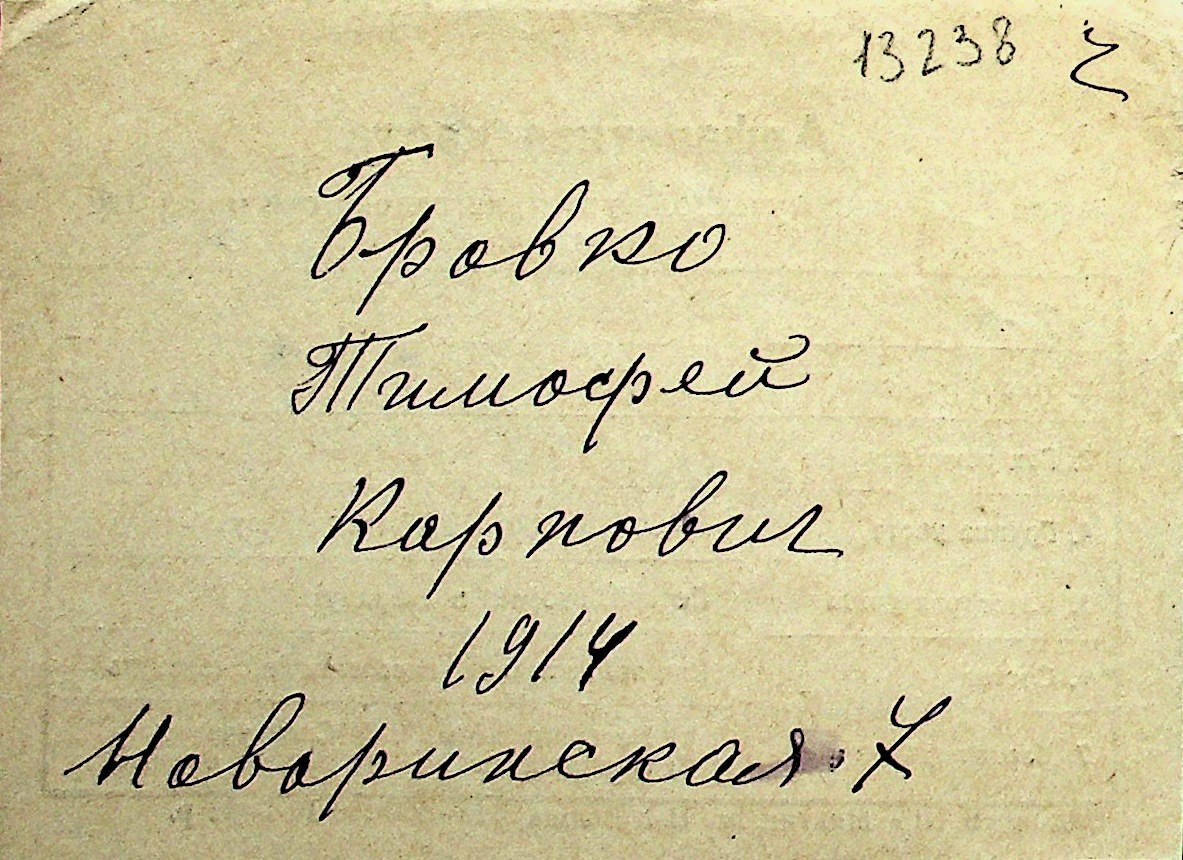 13238
Бровко
Тимофей
Карпович
1914
Новаринская 7